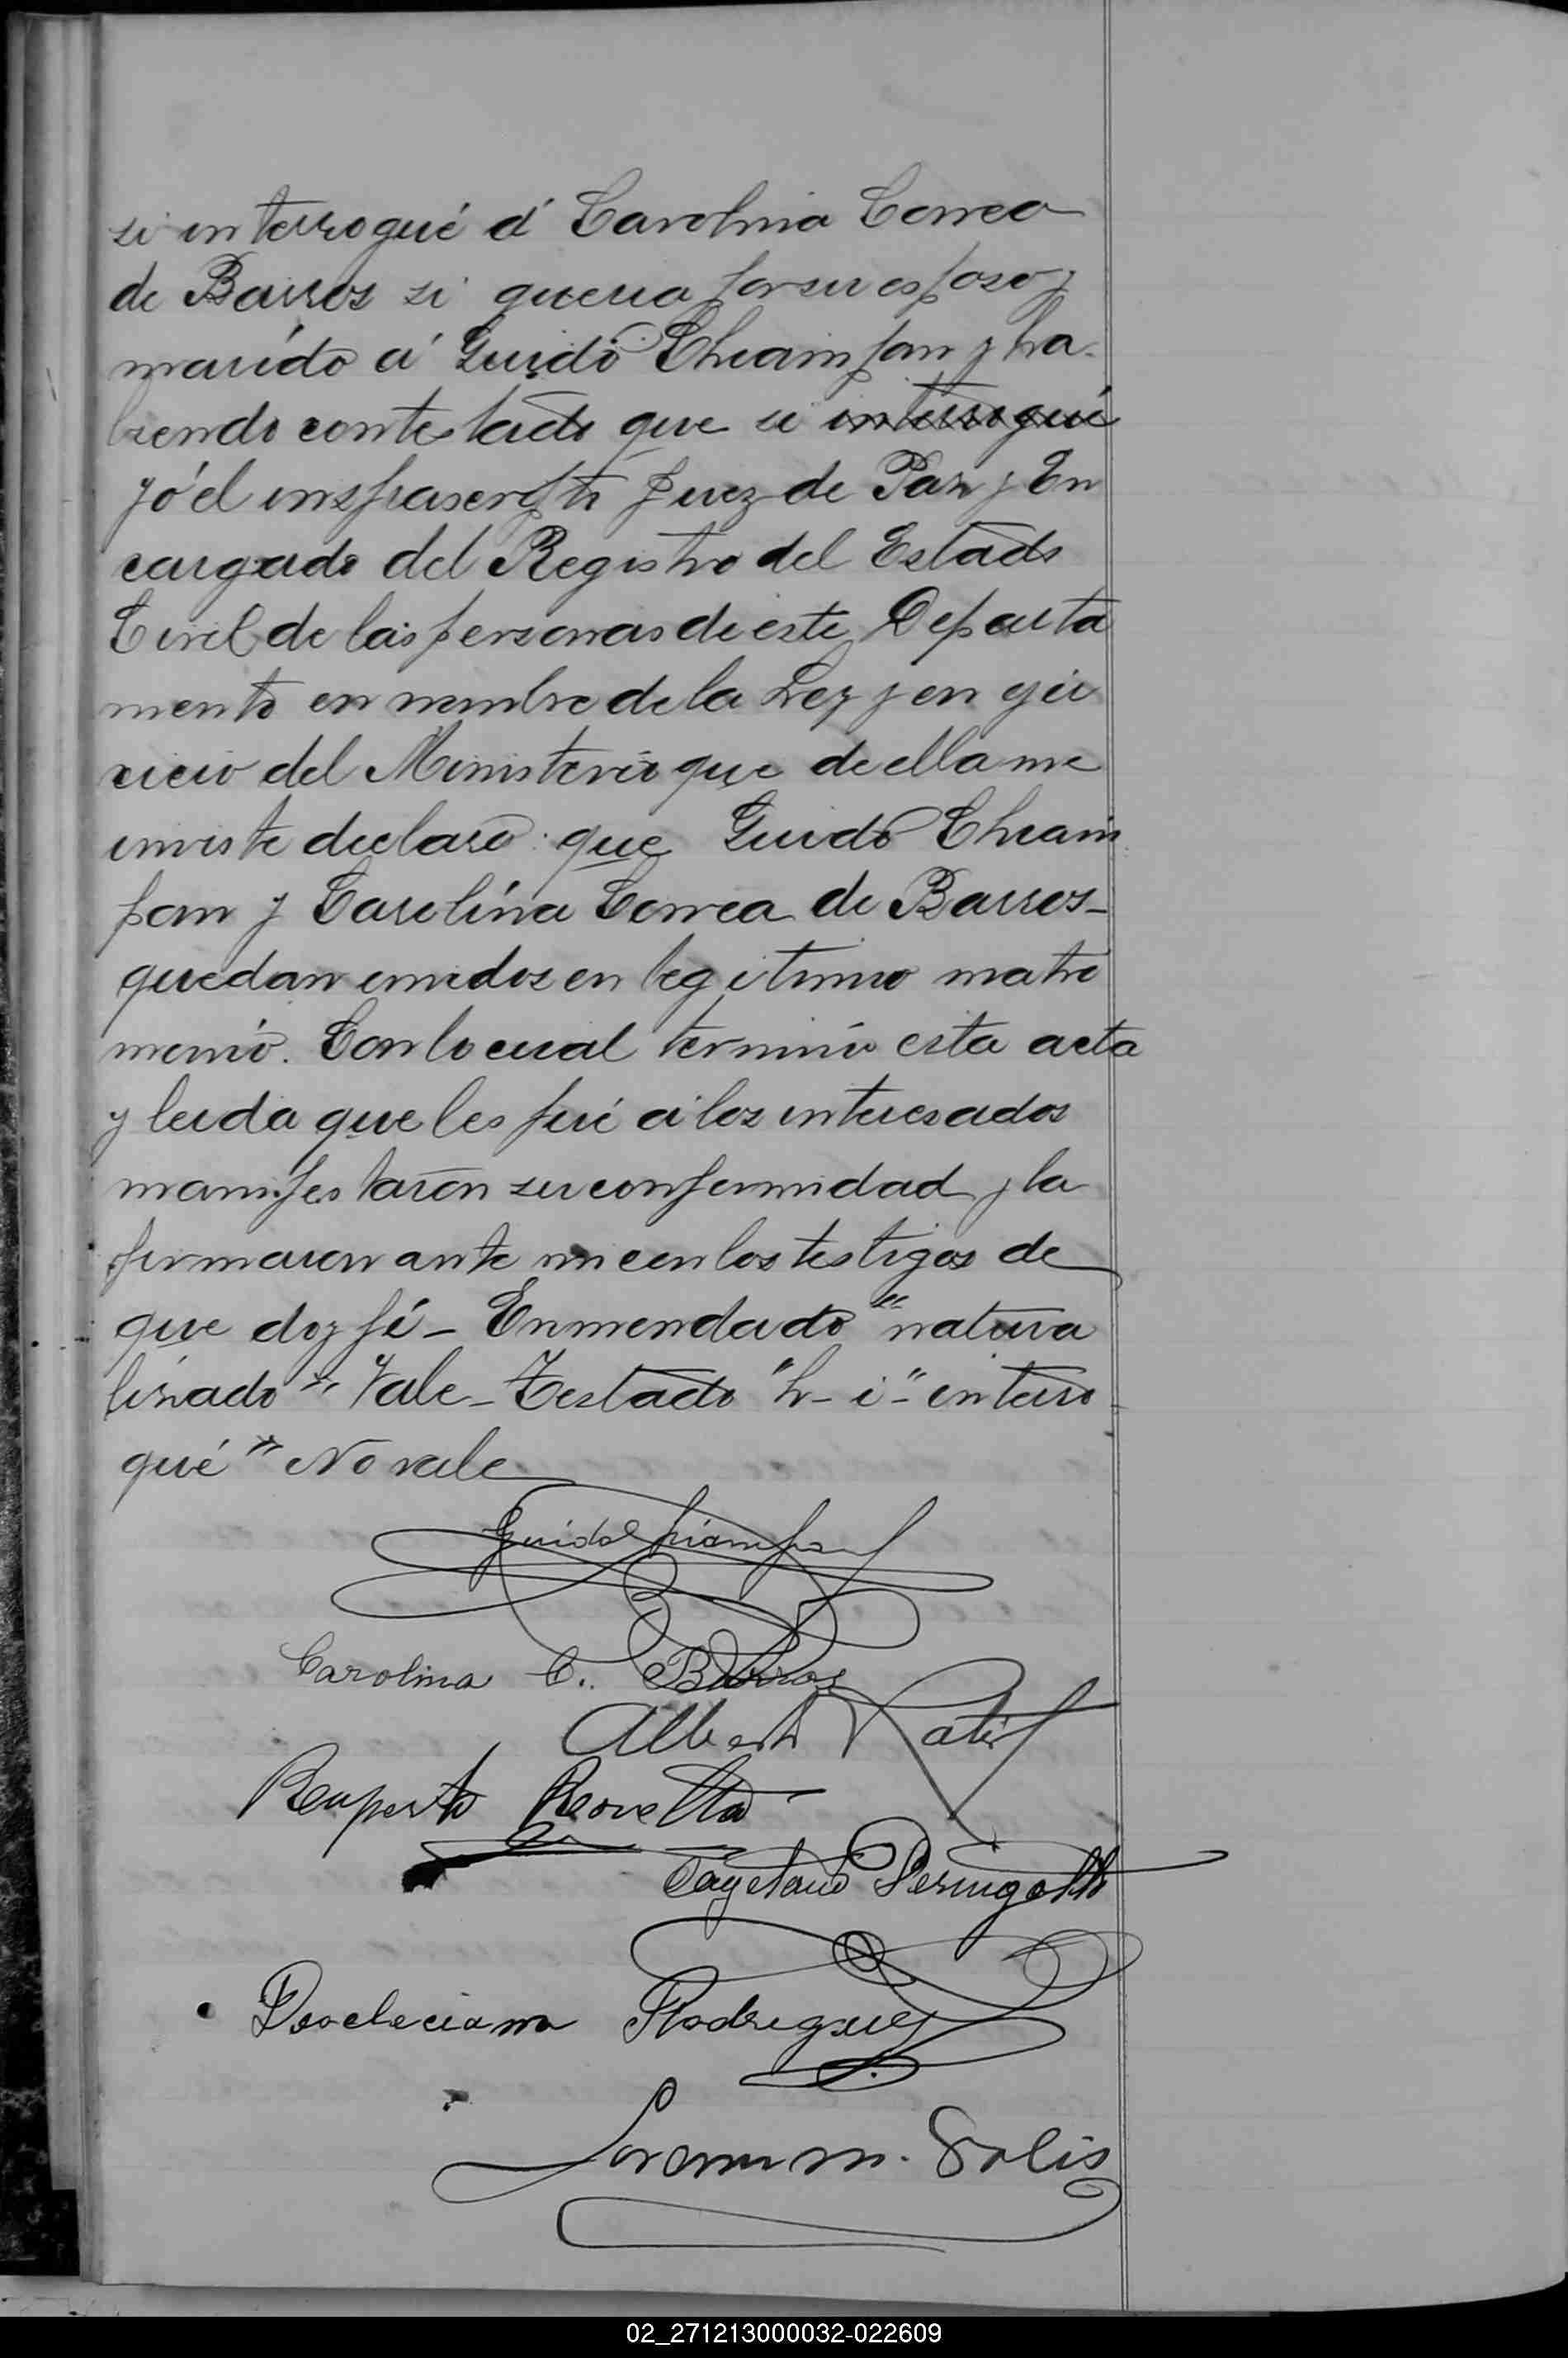 si interrogué á Carolina Correa
de Barros si queria por su esposo y
marido á Guido Chiampan y ha-
biendo contestado que si interrogué
yó él insfrascripto Juez de Paz y En
cargado del Registro del Estado
Civil de las personas de este Departa
mento en nombre de la Ley y en ejer
cicio del Ministerio que de ella me
inviste declaro: que Guido Chiam
pan y Carolina Correa de Barros-
quedan unidos en legitimo matri
monio. Con lo cual terminó esta acta
y leida que les fué á los interesados
manifestaron su conformidad y la
firmaron ante mi con los testigos de
que doy fé - Enmendado "natura
lizado" Vale - Testado "h- i" - interro
gué" No vale
Guido Chiampan
Carolina C. Barros
Alberto
Ruperto
Cayetano Peringotti
Deocleciana Rodriguez
m. Solis
02_271213000032-022609